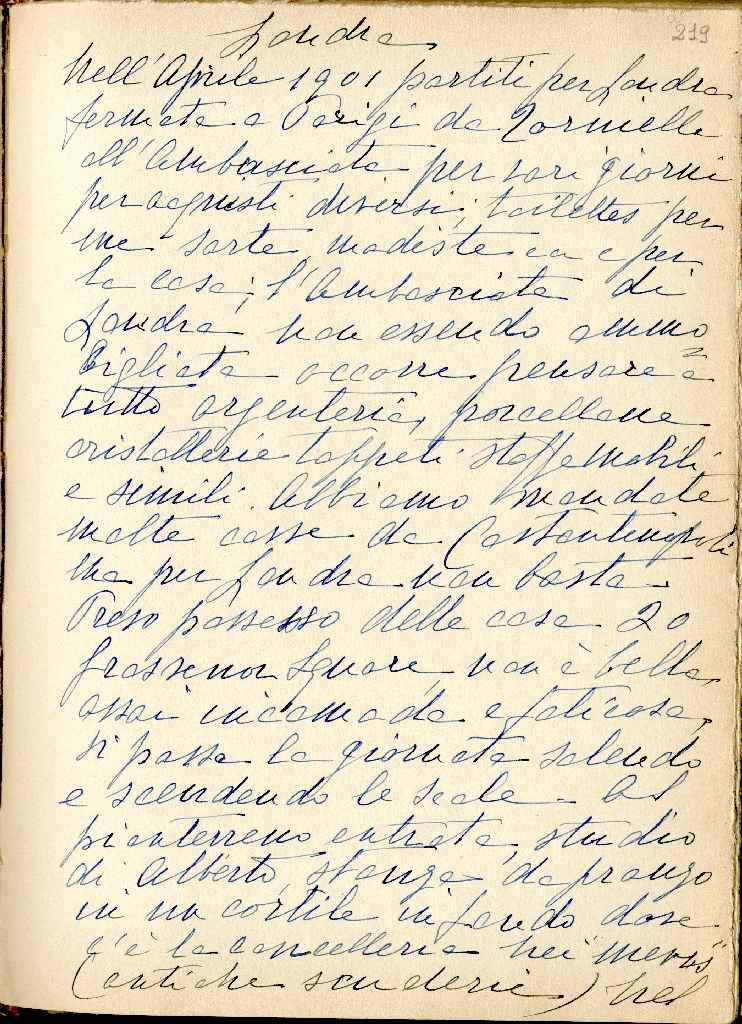 219
Londra
Nell'Aprile 1901 partiti per Londra
fermata a Parigi da Tornielli
all'Ambasciata per vari giorni
per acquisti diversi; toilettes per
me sarte, modiste e per
la casa; l'Ambasciata di
Londra non essendo ammo
bigliata occorre pensare a
tutto argenteria, porcellane
cristallerie tappeti stoffe mobili
e simili. Abbiamo mandate
molte casse da Costantinopoli
ma per Londra non basta.
Preso possesso della casa 20
Grossvenor Square, non è bella,
assai incomoda e faticosa,
si passa la giornata salendo
e scendendo le scale - Al
pianterreno entrata, studio
di Alberto, stanza da pranzo
in un cortile in fondo dove
c'è la cancelleria nei "mews"
(antiche scuderie) Nel